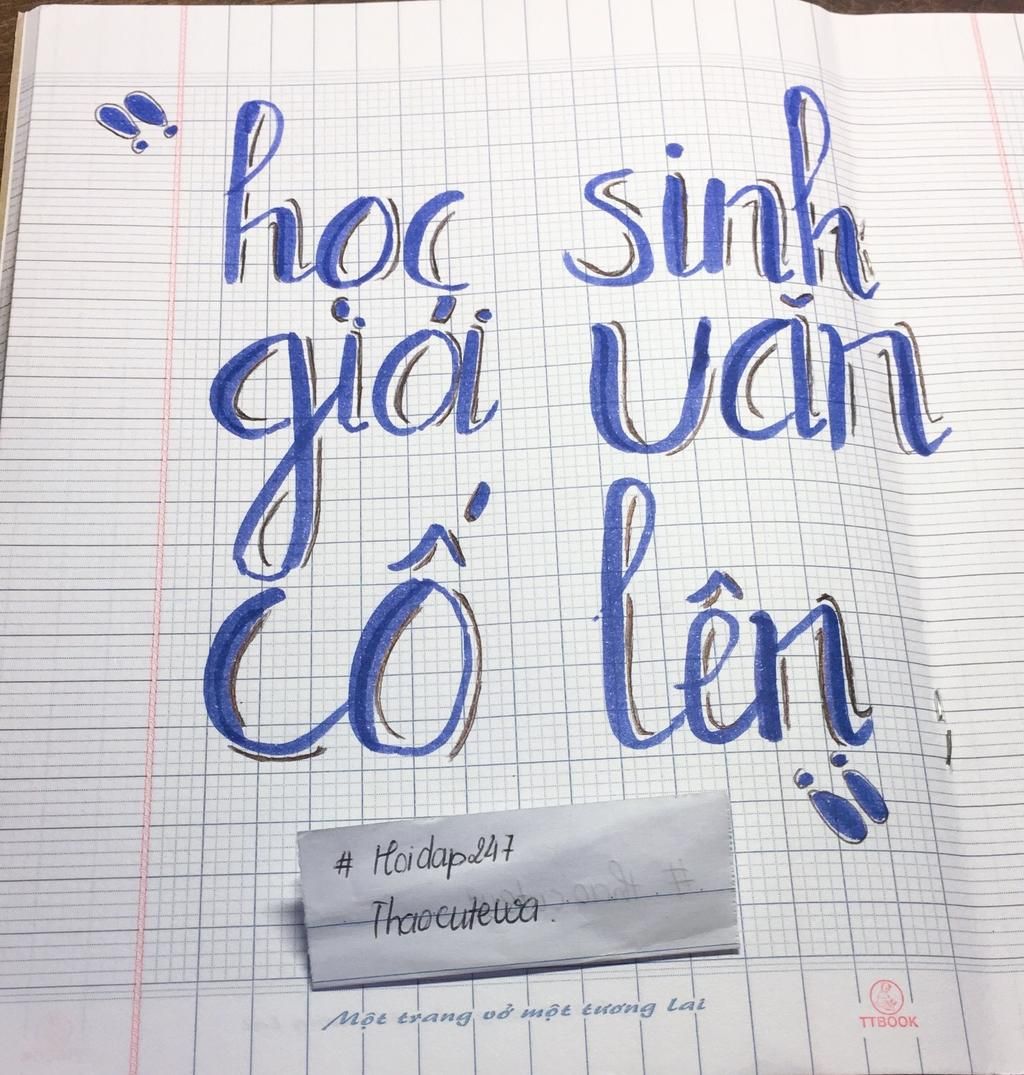 học sinh
giỏi văn
cố lên
# Hoidap247
Thaocutewa.
Một trang vở một tương lai
TTBOOK